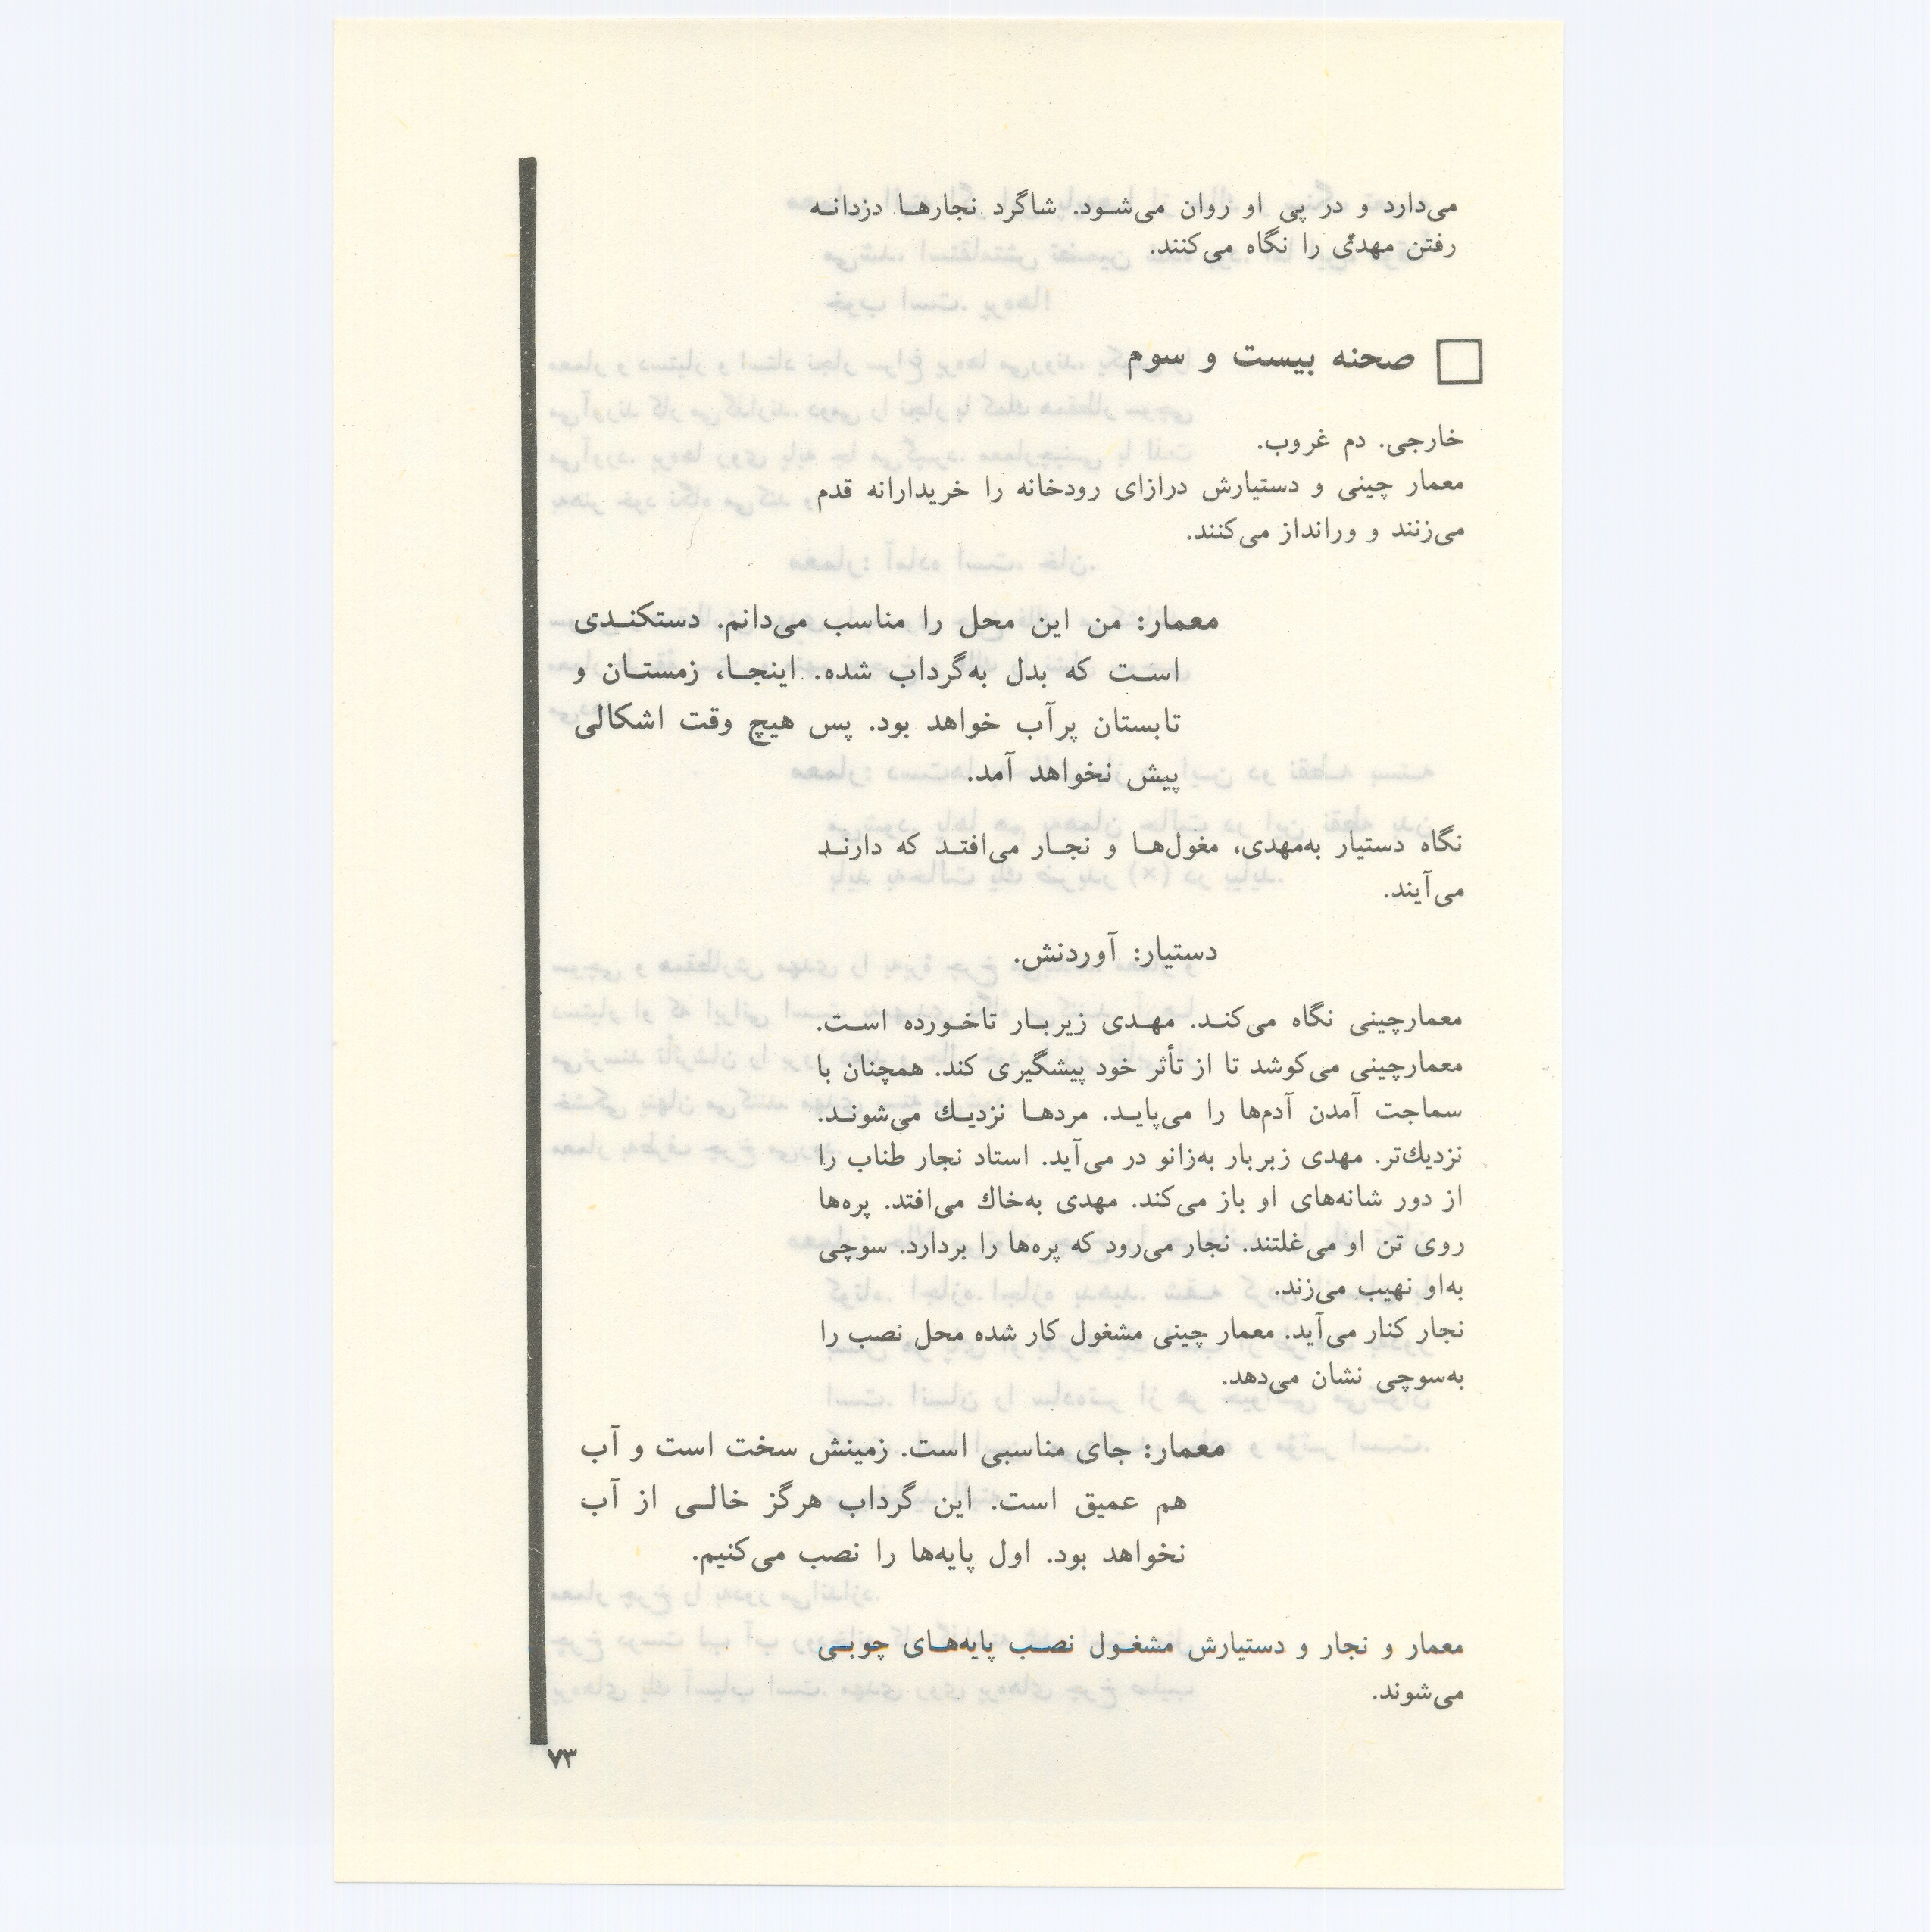 می‌دارد و در پی او روان می‌شود. شاگرد نجارها دزدانه
رفتن مهدی را نگاه می‌کنند.
صحنه بیست و سوم
خارجی. دم غروب.
معمار چینی و دستیارش درازای رودخانه را خریدارانه قدم
می‌زنند و ورانداز می‌کنند.
معمار: من این محل را مناسب می‌دانم. دستکندی
است که بدل به‌گرداب شده. اینجا، زمستان و
تابستان پرآب خواهد بود. پس هیچ وقت اشکالی
پیش نخواهد آمد.
نگاه دستیار به‌مهدی، مغول‌ها و نجار می‌افتد که دارند
می‌آیند.
دستیار: آوردنش.
معمارچینی نگاه می‌کند. مهدی زیربار تاخورده است.
معمارچینی می‌کوشد تا از تأثر خود پیشگیری کند. همچنان با
سماجت آمدن آدم‌ها را می‌پاید. مردها نزدیك می‌شوند.
نزدیك‌تر. مهدی زیربار به‌زانو در می‌آید. استاد نجار طناب را
از دور شانه‌های او باز می‌کند. مهدی به‌خاك می‌افتد. پره‌ها
روی تن او می‌غلتند. نجار می‌رود که پره‌ها را بردارد. سوچی
به‌او نهیب می‌زند.
نجار کنار می‌آید. معمار چینی مشغول کار شده محل نصب را
به‌سوچی نشان می‌دهد.
معمار: جای مناسبی است. زمینش سخت است و آب
هم عمیق است. این گرداب هرگز خالی از آب
نخواهد بود. اول پایه‌ها را نصب می‌کنیم.
معمار و نجار و دستیارش مشغول نصب پایه‌های چوبی
می‌شوند.
۷۳